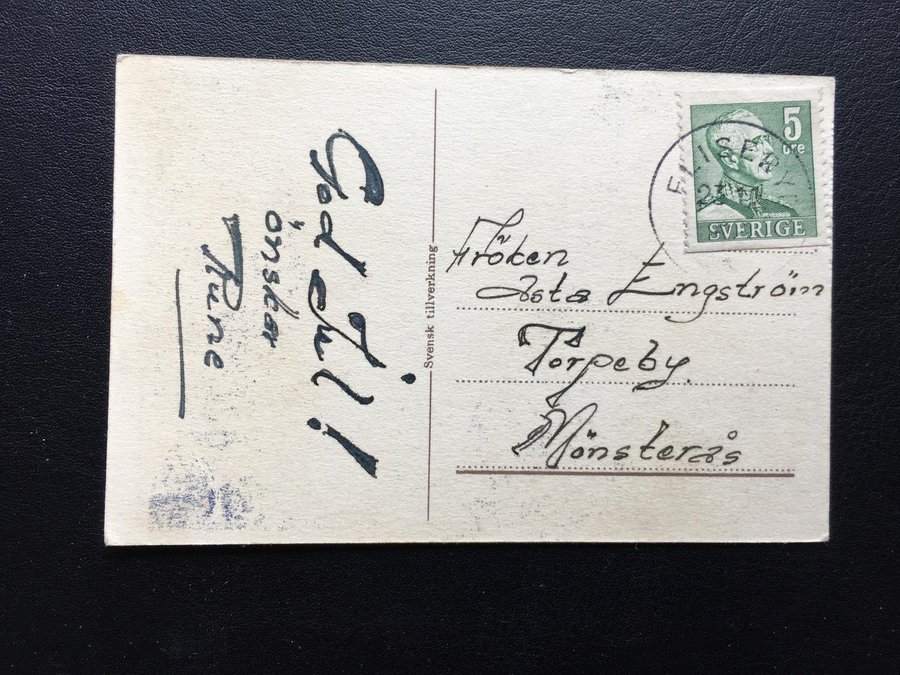 God Jul!
önskar
Rune
Svensk tillverkning
5
öre
SVERIGE
Fröken
Asta Engström
Torpeby.
Mönsterås